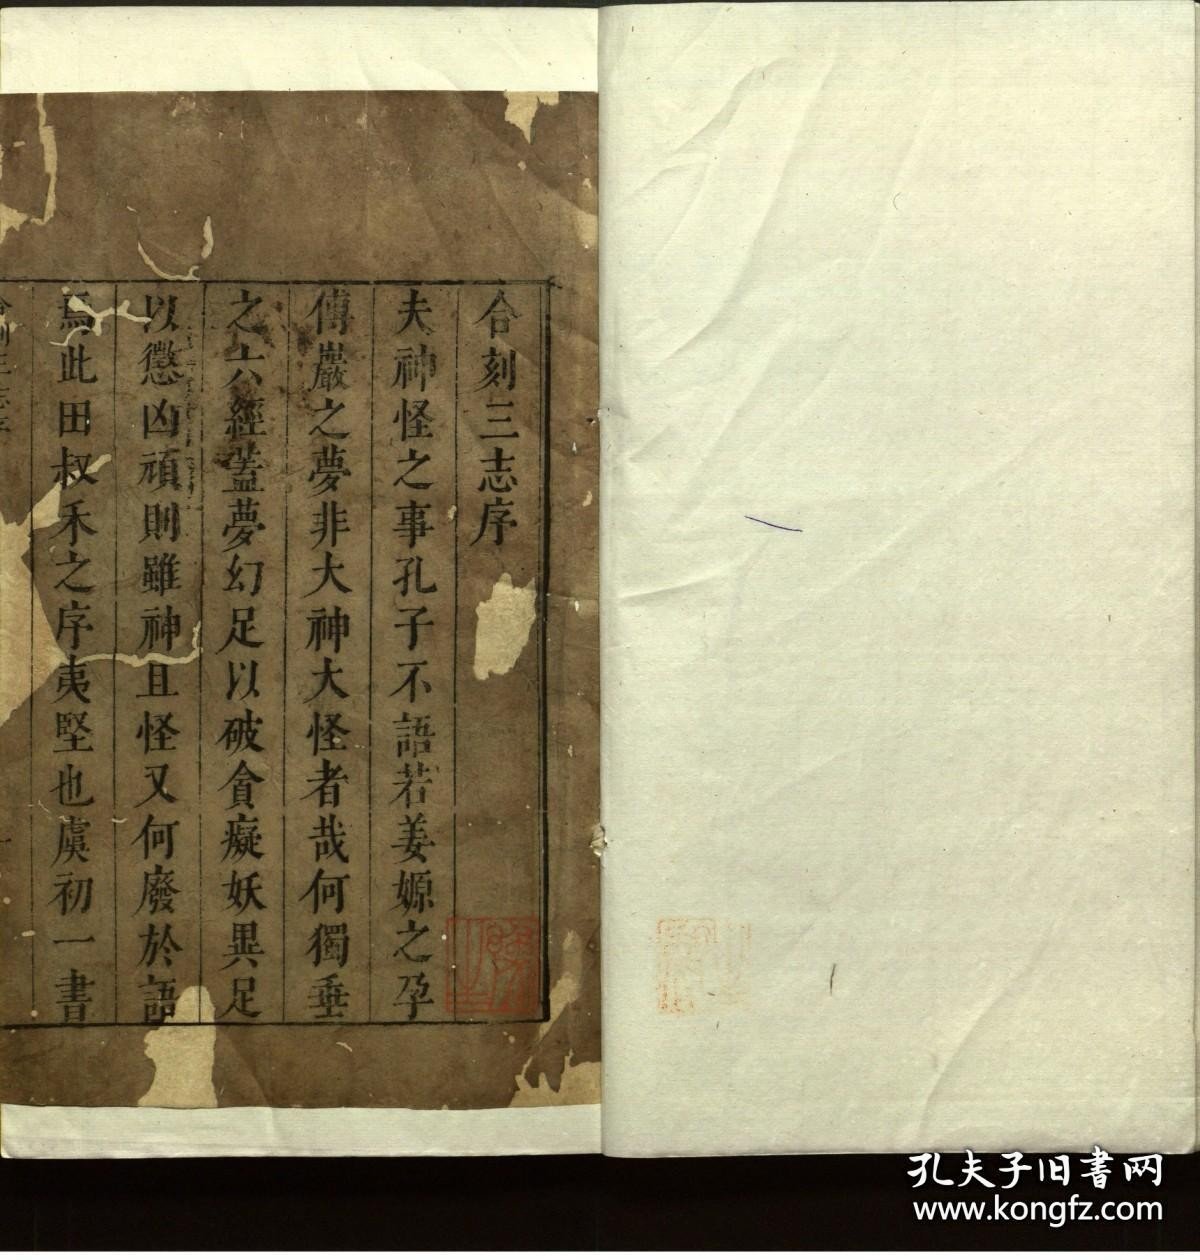 合刻三志序
夫神怪之事孔子不語若姜嫄之孕
傅巖之夢非大神大怪者哉何獨垂
之六經蓋夢幻足以破貪癡妖異足
以懲凶頑則雖神且怪又何廢於語
焉此田叔禾之序夷堅也虞初一書
孔夫子旧書网
www.kongfz.com